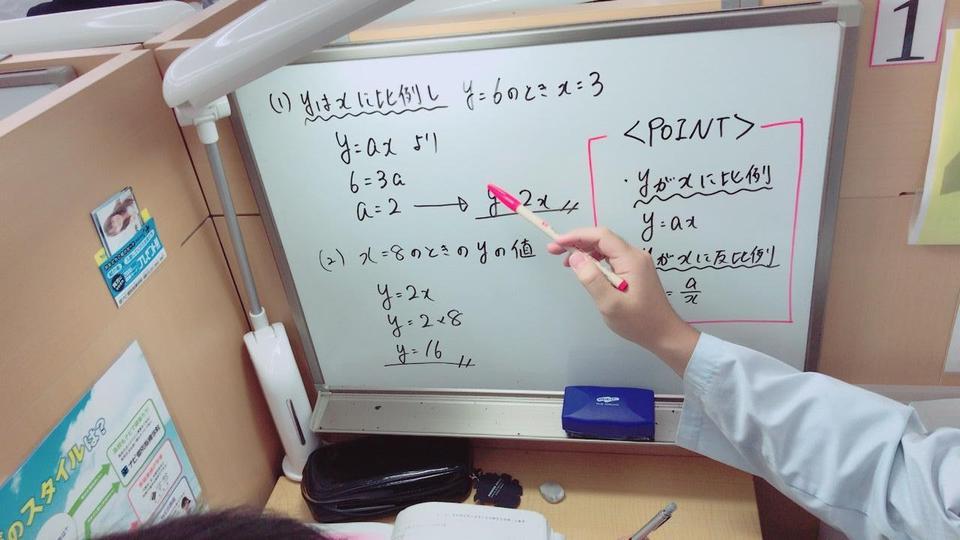 (1) yはxに比例し y=6のときx=3
y=ax より
6=3a
a=2 → y 2x
(2) x=8のときのyの値
y=2x
y=2×8
y=16
<POINT>
・yがxに比例
y=ax
yがxに反比例
= a/x
1
のスタイルは?